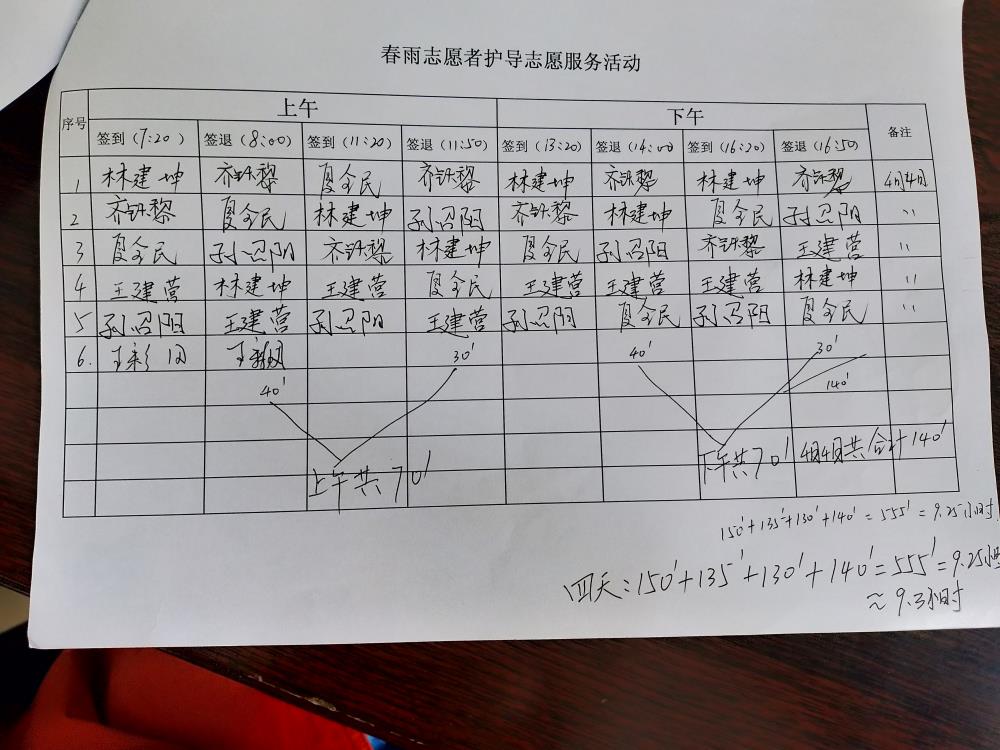 春雨志愿者护导志愿服务活动
序号 上午 下午 备注
签到(7:20) 签退(8:00) 签到(11:20) 签退(11:50) 签到(13:20) 签退(14:00) 签到(16:20) 签退(16:50)
1 林建坤 齐铁黎 夏全民 齐铁黎 林建坤 齐铁黎 林建坤 齐铁黎 4月4日
2 齐铁黎 夏全民 林建坤 孙召阳 齐铁黎 林建坤 夏全民 孙召阳 〃
3 夏全民 孙召阳 齐铁黎 林建坤 夏全民 孙召阳 齐铁黎 王建营 〃
4 王建营 林建坤 王建营 夏全民 王建营 王建营 王建营 林建坤 〃
5 孙召阳 王建营 孙召阳 王建营 孙召阳 夏全民 孙召阳 夏全民 〃
6. 30′ 40′ 30′
40′ 140′
上午共70′ 下午共70′ 4月4日共合计140′
150′+135′+130′+140′=555′=9.25小时
四天:150′+135′+130′+140′=555′=9.25小时
≈9.3小时